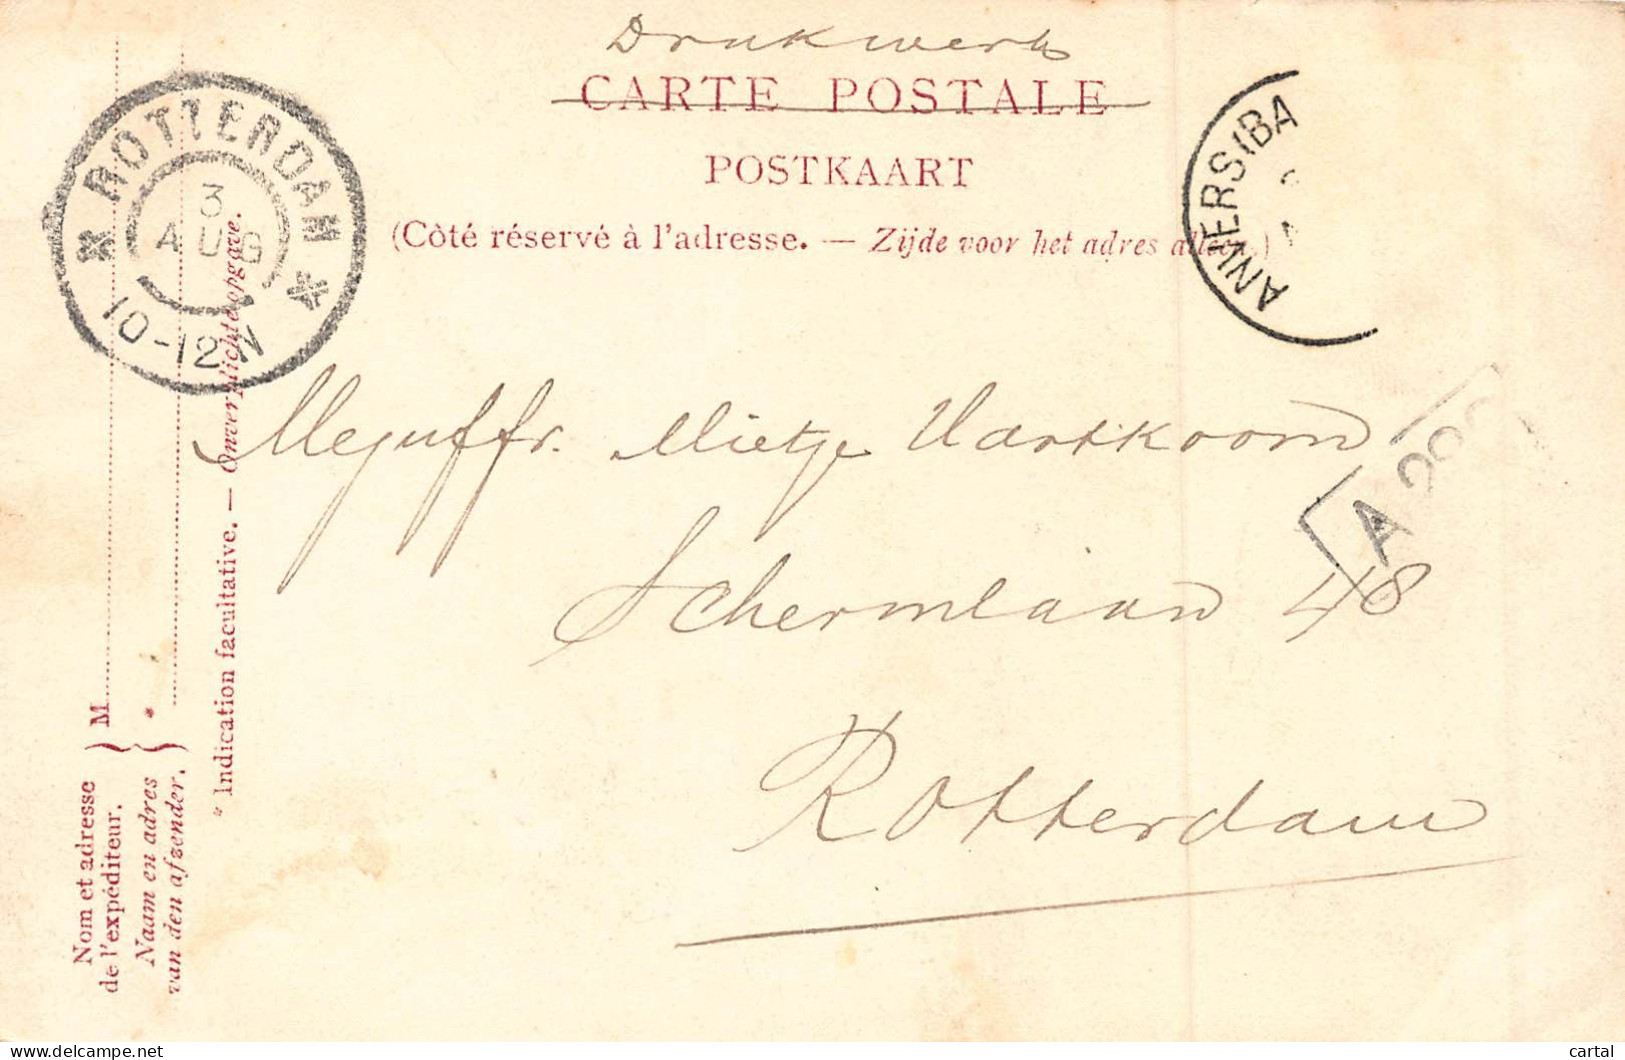 Drukwerk
CARTE POSTALE
POSTKAART
(Côté réservé à l'adresse. — Zijde voor het adres alleen.)
ROTTERDAM
3
AUG
10-12N
ANVERS
Mejuffr. Mietje
Schermlaan 48
Rotterdam
Nom et adresse
de l'expéditeur.
M
Naam en adres
van den afzender.
*
* Indication facultative. — Onverplichte opgave.
delcampe.net
cartal